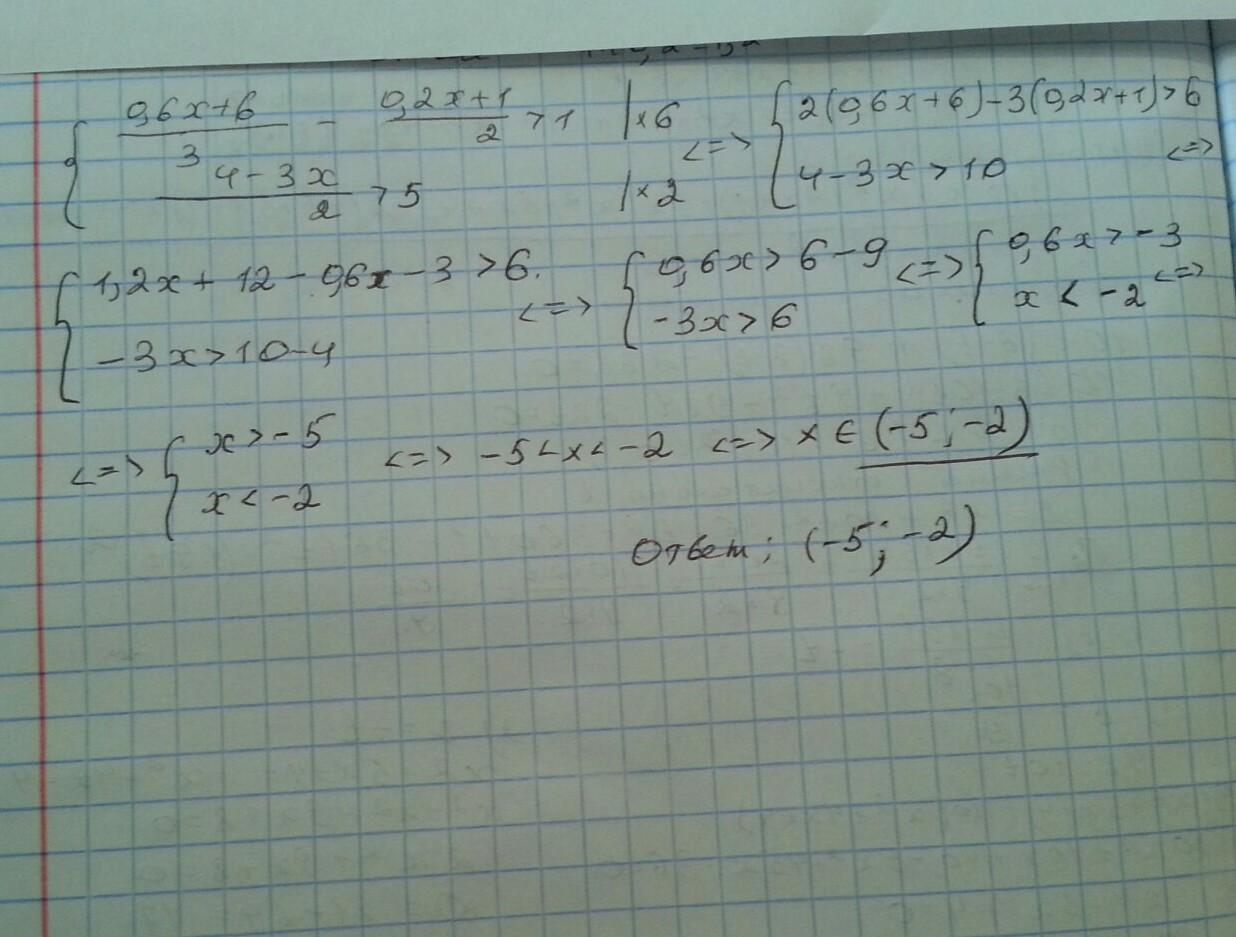 { (0,6x+6)/3 - (0,2x+1)/2 > 1 |×6
(4-3x)/2 > 5 |×2
<=> { 2(0,6x+6)-3(0,2x+1)>6
4-3x>10 <=>
{ 1,2x+12-0,6x-3>6.
-3x>10-4
<=> { 0,6x>6-9
-3x>6
<=> { 0,6x>-3
x<-2 <=>
<=> { x>-5
x<-2
<=> -5<x<-2 <=> x∈(-5;-2)
Ответ: (-5;-2)